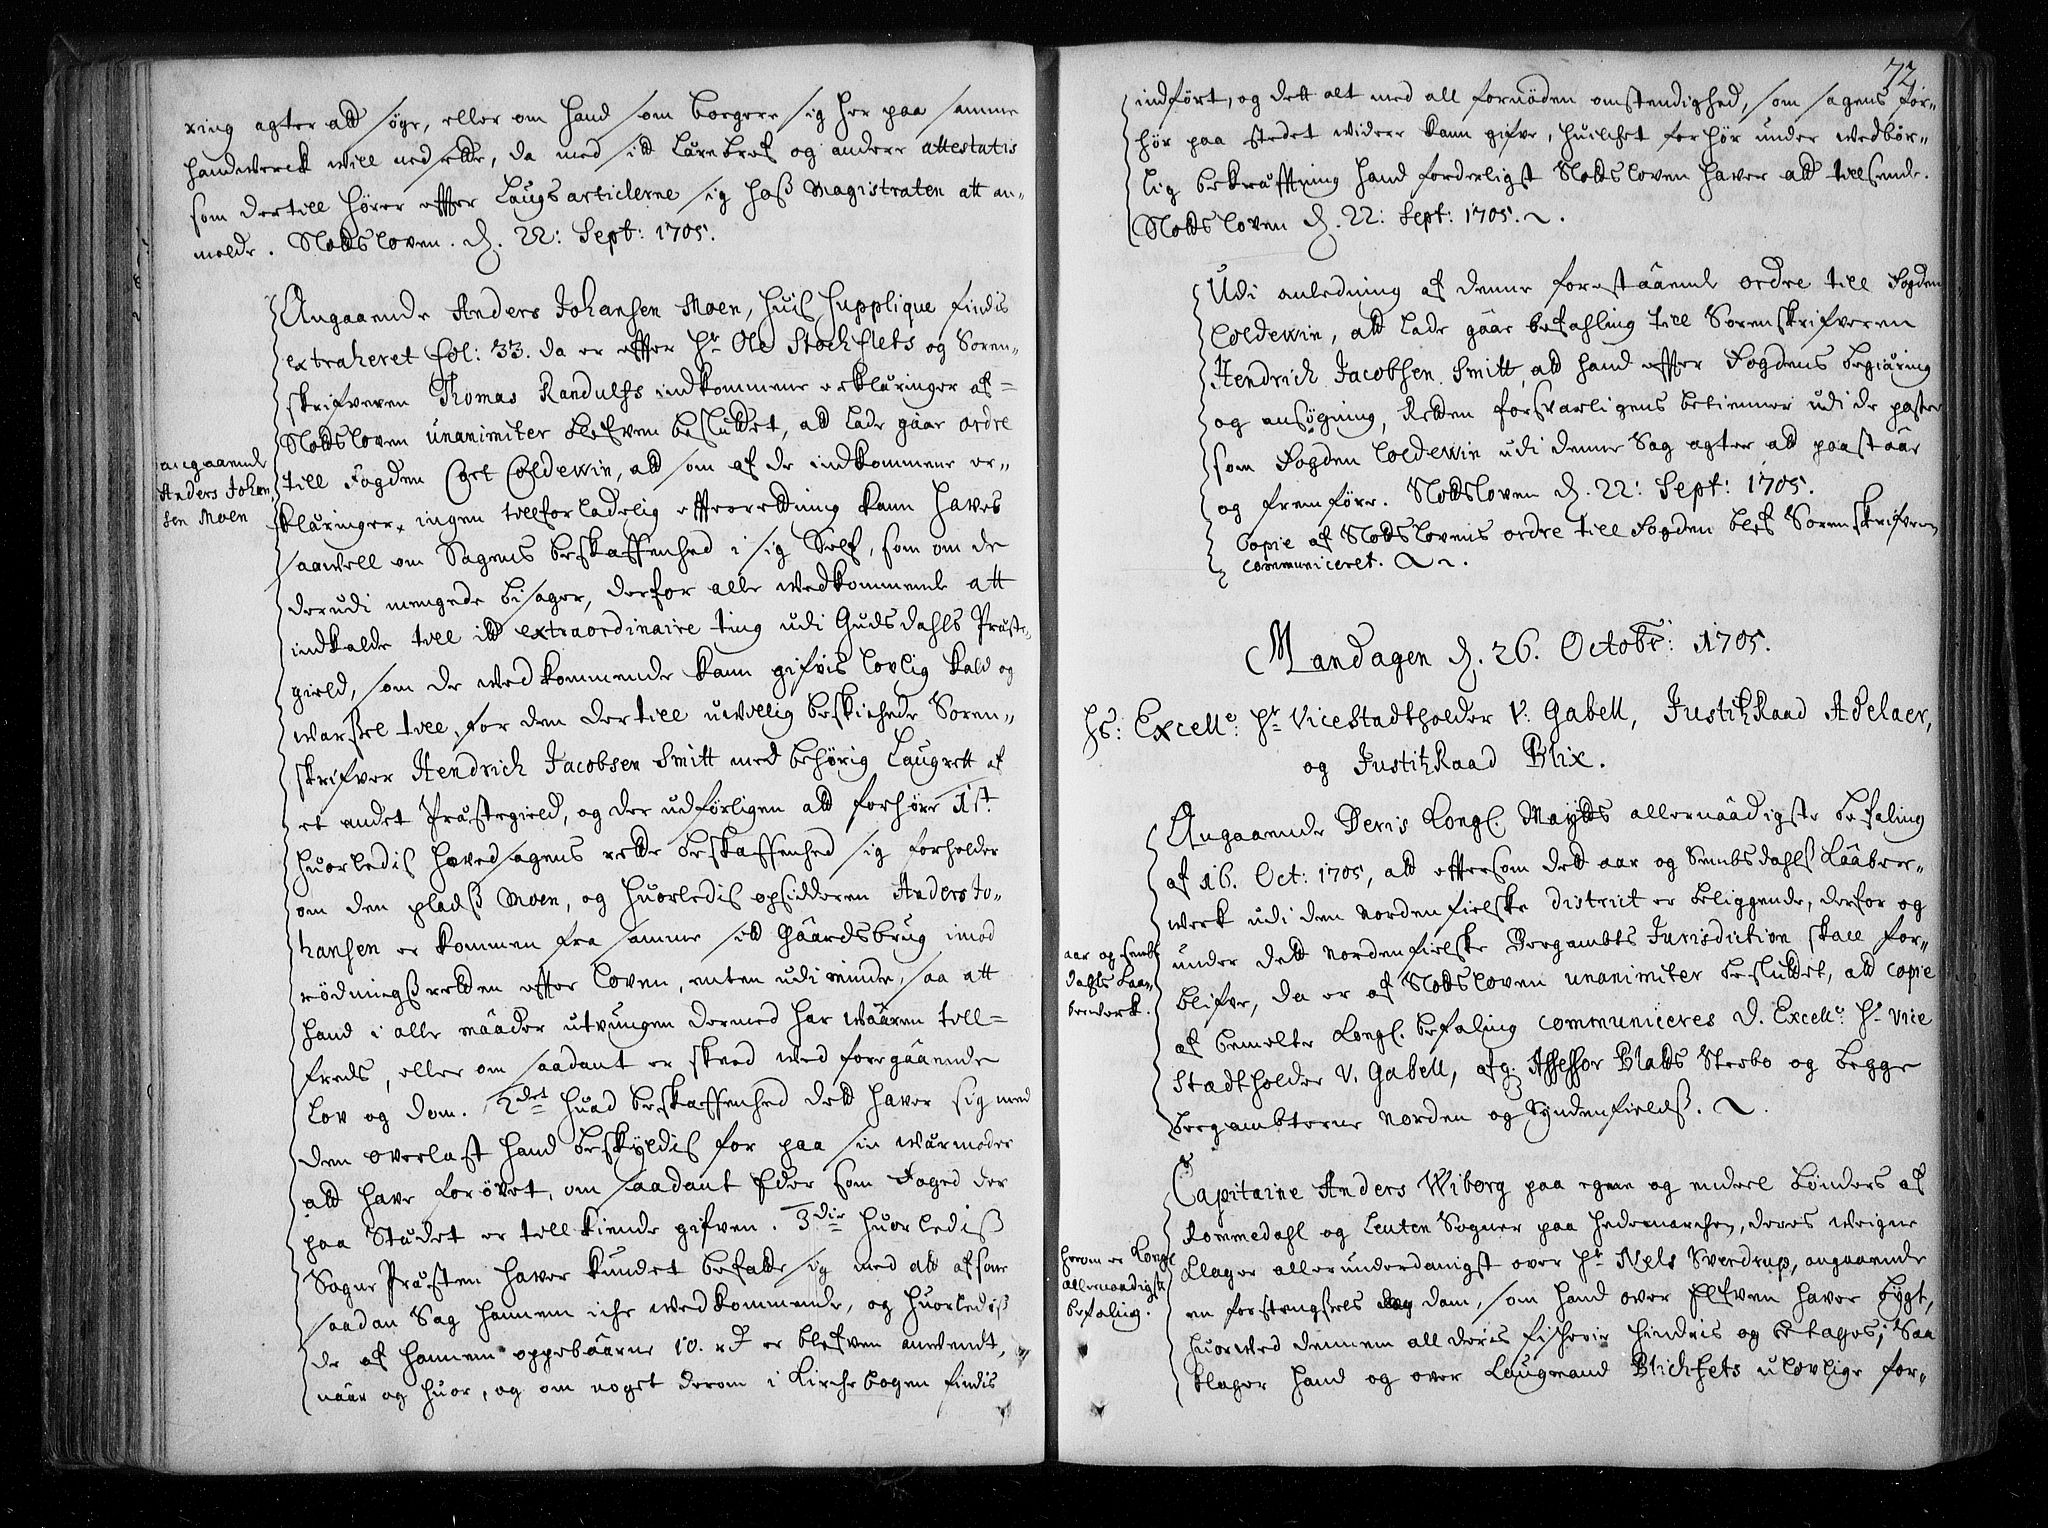 ring agter att søge, eller om hand som borgere sig her paa samme
handwerck will nedsette, da med sit Lærebref og andere attestatis
som dertill hører effter Laugsarticlerne sig hoß Magistraten att an-
melde. Slottsloven. d. 22: Sept: 1705.
Angaaende Anders Johansen Moen, huis Supplique findis
extraheret fol: 33. da er effter Hr Ole Stockflets og Soren-
skrifveren Thomas Randulfs indkommene erklæringer af
Slottsloven unanimiter blefven besluttet, att lade gaae ordre
till Fogden Cort Coldewin, att som af de indkommene er-
klæringer ingen tillforladelig effterretning kann haves
saawell om Sagens beskaffenhed i sig Self, som om de
derudi mengede bisager, derfor alle wedkommende att
indkalde till itt extraordinaire ting udi Gudsdahls Præste-
gield, som de wedkommende kann gifvis lovlig kald og
warsel till, for den dertill uwillig beskickede Soren-
skrifver Hendrich Jacobsen Smitt med behørig Laugrett af
et andet Præstegield, og der udførligen att forhøre 1st
huorledis hovedsagens rette beskaffenhed sig forholder
om den pladß Moen, og huorledis opsidderen Anders Jo-
hansen er kommen fra samme sitt Gaardsbrug imod
rødningßretten effter loven, enten udi minde, saa att
hand i alle maader utvungen dermed har wæren till-
freds, eller om saadant er skeed wed foregaaende
Lov og dom. 2det huad beskaffenhed dett haver sig med
den overlast hand beskyldis for paa sin wærmoder
att have forøvet, om saadant Eder som Foged der
paa Stædet er till kiende gifven. 3die huorlediß
Sogne Præsten haver kundet befatte sig med att afsone
saadan Sag hannem iche wedkommende, og huorlediß
de af hannem oppebaarne 10. rd er blefven anwendt,
naar og huor, og om noget derom i Kirchebogen findis
angaaende
Anders Johan
sen Moen
72
indført, og dett alt med all fornøden omstendighed, som sagens for-
hør paa stedet widere kann gifve, huilchet forhør under wedbør-
lig bekræfftning hand forderligst Slottsloven haver att tilsende.
Slottsloven d. 22: Sept: 1705.
Udi anledning af denne forestaaende ordre till Fogden
Coldewin, att lade gaae befahling till Sorenskrifveren
Hendrich Jacobsen Smitt, att hand effter Fogdens begiæring
og ansøgning, Retten forsvarligens betienner udi de poster
som Fogden Coldewin udi denne Sag agter att paastaae
og fremføre. Slottsloven d. 22: Sept: 1705.
Copie af Slottslovens ordre till Fogden blef Sorenskrifveren
communiceret.
Mandagen d. 26. Octobr: 1705.
Hs: Excell: Hr ViceStadtholder V: Gabell, JustitzRaad Adelaer,
og JustitzRaad Blix.
Angaaende Deris Kongl. Maytts allernaadigste befaling
af 16. Oct: 1705, att efftersom dett aar og Sembsdahls Kaaber-
werk udi den Nordenfielske district er beliggende, derfor og
under dett Nordenfielske Bergambts Jurisdiction skall for-
blifve, da er af Slottsloven unanimiter besluttet, att copie
af bemelte Kongl. befaling communiceres d. Excell: Hr Vice
Stadtholder V. Gabell, afg. Assessor Blatts Sterbo og begge
bergambterne Norden og Syndenfields.
aar og sembs
dahls Kaa-
berwerk.
Capitaine Anders Wiborg paa egne og endeel Bønders af
Rommedahl og Leuten Sogner paa Hedemarchen, deres weigne
klager allerunderdanigst over Hr Niels Sverdrup, angaaende
en forstengsels dam, som hand over Elfven haver bygt,
huorwed dennem all deris fischerie hindris og betages, Saa
klager hand og over Laugmand Blichfets ulovlige for-
herom er Kongl
allernaadigste
befaling.